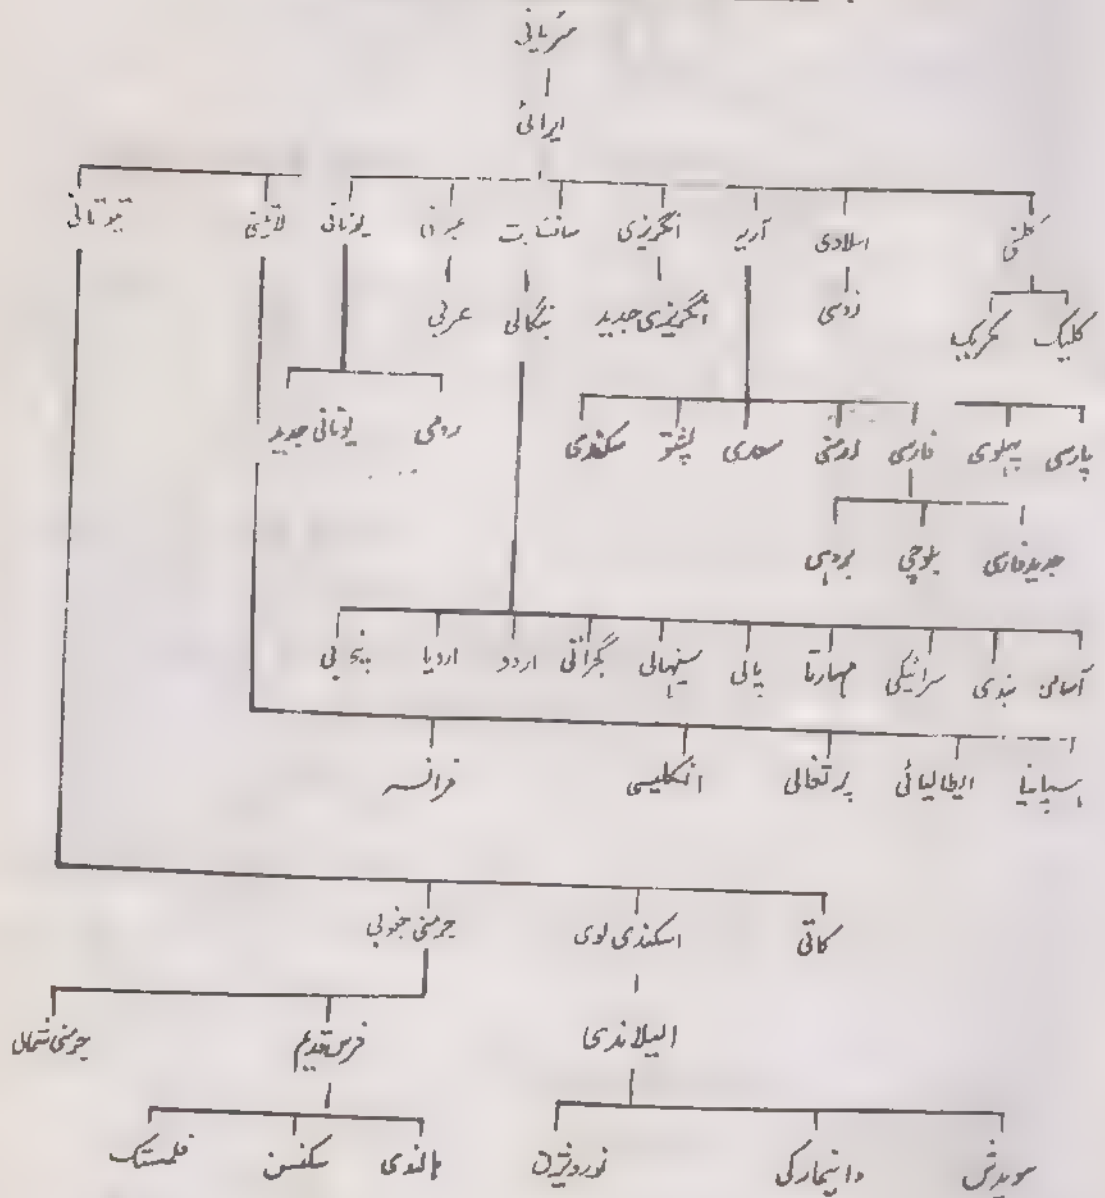 سُریانی
ایرانی
کلتی اسلادی آریہ انگریزی سانسکرت عبرانی یونانی لاتینی تیوتانی
کلیک روسی انگریزی جدید بنگالی عربی
رومی یونانی جدید
پارسی پہلوی فارسی ارمنی پشتو سکندی
جدید فارسی بلوچی بروہی
آسامی ہندی سرائیکی مہارتا پالی سینہالی گجراتی اردو اردیا پنجابی
ہسپانیا ایطالیائی پرتغالی انگلیسی فرانسہ
کاتی اسکندی لوی جرمنی جنوبی
الیلاندی فرس قدیم جرمنی شمالی
سویدش دانیمارکی نورویژن ہالندی سکسن فلمستک